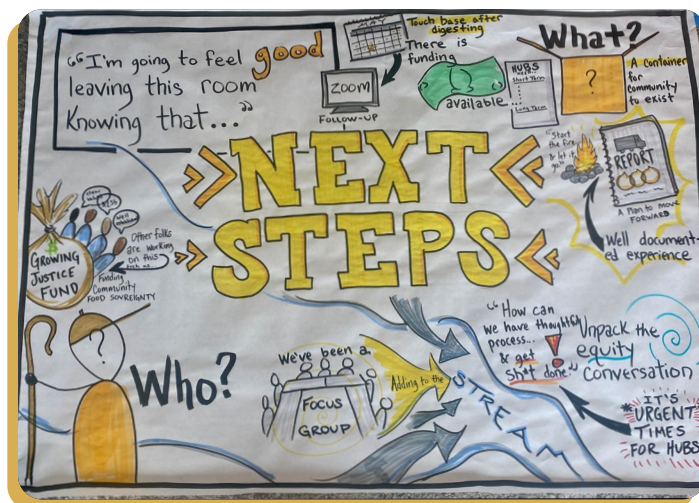 "I'm going to feel good
leaving this room
Knowing that..."
MAY
Touch base after
digesting
ZOOM
FOLLOW-UP
There is
funding
available
HUBS
Short Term
Long Term
What?
?
A container
for
community
to exist
NEXT
STEPS
"Start
the fire
& let it
go."
REPORT
A Plan to move
FORWARD
Well document-
ed experience
GROWING
JUSTICE
FUND
Other folks
are working
on this
Funding
Community
FOOD SOVREIGNTY
?
Who?
We've been a
FOCUS
GROUP
Adding to the
STREAM
"How can
we have thoughtful
process...
& get
sh*t done."
Unpack the
equity
conversation
*IT'S
URGENT
TIMES
FOR HUBS